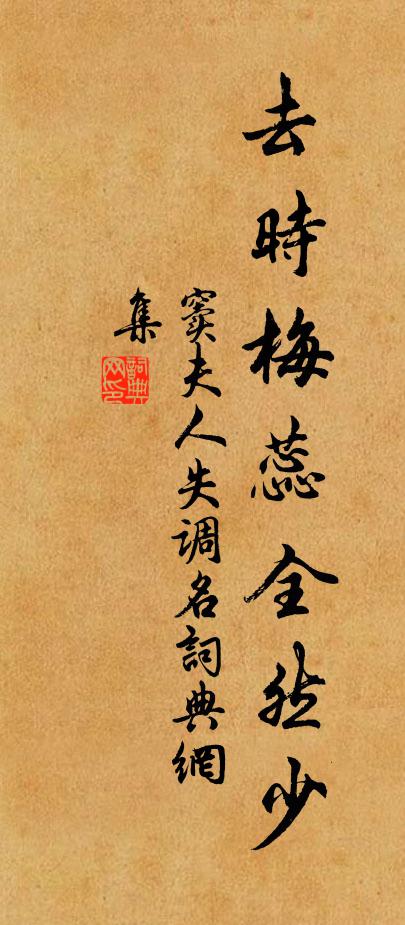 去時梅蕊全然少
竇夫人失調名詞典網
集
詞典網印